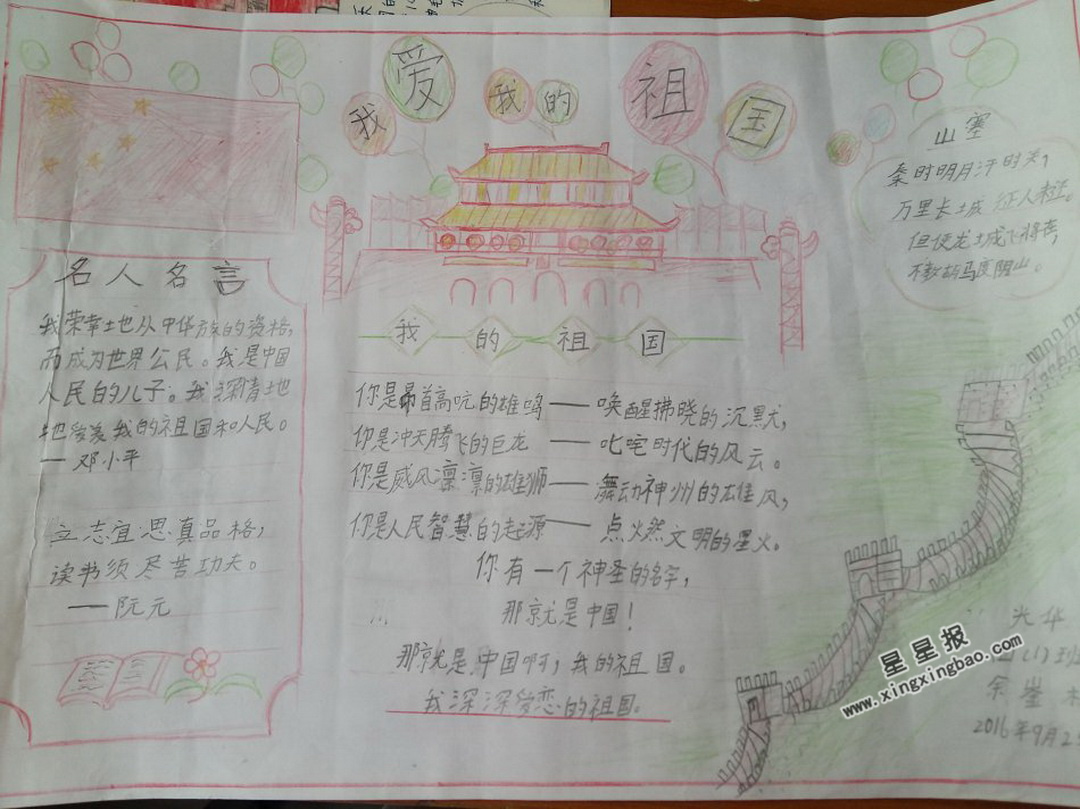 我爱我的祖国
名人名言
我荣幸地从中华族的资格,
而成为世界公民。我是中国
人民的儿子。我深情地
地爱着我的祖国和人民。
——邓小平
立志宜思真品格,
读书须尽苦功夫。
——阮元
我的祖国
你是首高吭的雄鸣——唤醒拂晓的沉默,
你是冲天腾飞的巨龙——叱咤时代的风云。
你是威风凛凛的雄狮——舞动神州的雄风,
你是人民智慧的起源——点火然文明的星火。
你有一个神圣的名字,
那就是中国!
那就是中国啊,我的祖国。
我深深爱恋的祖国。
山塞
秦时明月汗时关,
万里长城征人未还。
但使龙城飞将在,
不教胡马度阴山。
光华
(1)班
余
2016年9月2
星星报
www.xingxingbao.com